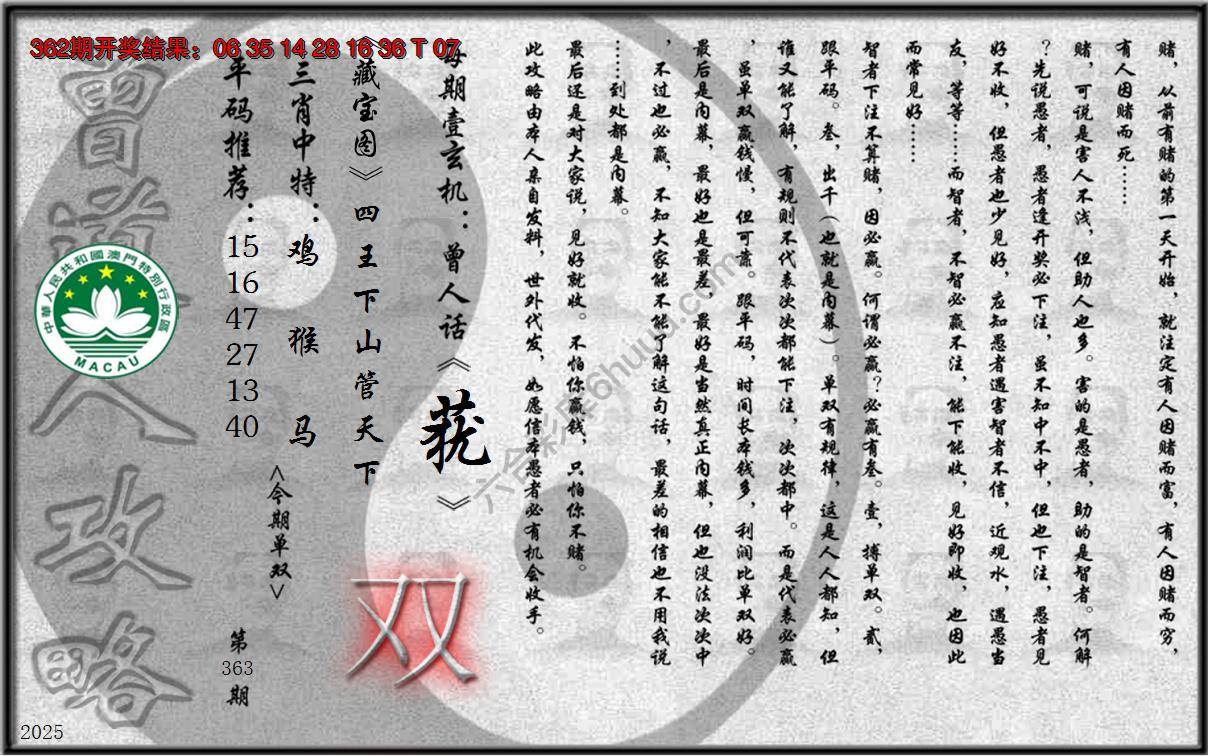 362期开奖结果：06 35 14 28 16 36 T 07
赌，从前有赌的第一天开始，就注定有人因赌而富，有人因赌而穷，
有人因赌而死……
赌，可说是害人不浅，但助人也多。害的是愚者，助的是智者。何解
？先说愚者，愚者逢开奖必下注，虽不知中不中，但也下注，愚者见
好不收，但愚者也少见好，应知愚者遇害智者不信，近观水，遇愚当
友，等等……而智者，不智必赢不注，能下能收，见好即收，也因此
而常见好……
智者下注不算赌，因必赢。何谓必赢？必赢有叁。壹，搏单双。贰，
跟平码。叁，出千（也就是内幕）。单双有规律，这是人人都知，但
谁又能了解，有规则不代表次次都能下注，次次都中。而是代表必赢
，虽单双赢钱慢，但可靠。跟平码，时间长本钱多，利润比单双好。
最后是内幕，最好也是最差，最好是当然真正内幕，但也没法次次中
，不过也必赢，不知大家能不能了解这句话，最差的相信也不用我说
……到处都是内幕。
最后还是对大家说，见好就收。不怕你赢钱，只怕你不赌。
此攻略由本人亲自发料，世外代发，如愿信本愚者必有机会收手。
每期壹玄机：曾人话《莸》
《藏宝图》四王下山管天下
双
三肖中特：鸡 猴 马
<今期单双>
平码推荐：
15
16
47
27
13
40
第
363
期
曾道人攻略
中華人民共和國澳門特別行政區
MACAU
六合彩库6huuu.com
2025